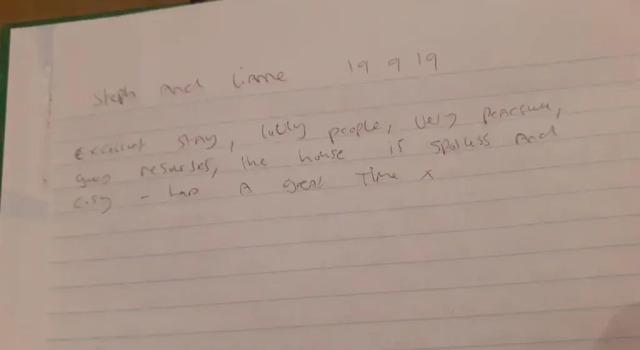 Steph And Lianne 19 9 19
Excellent stay, lovely people, very peaceful,
good resourses, the house is spotless And
cosy - had A great Time x